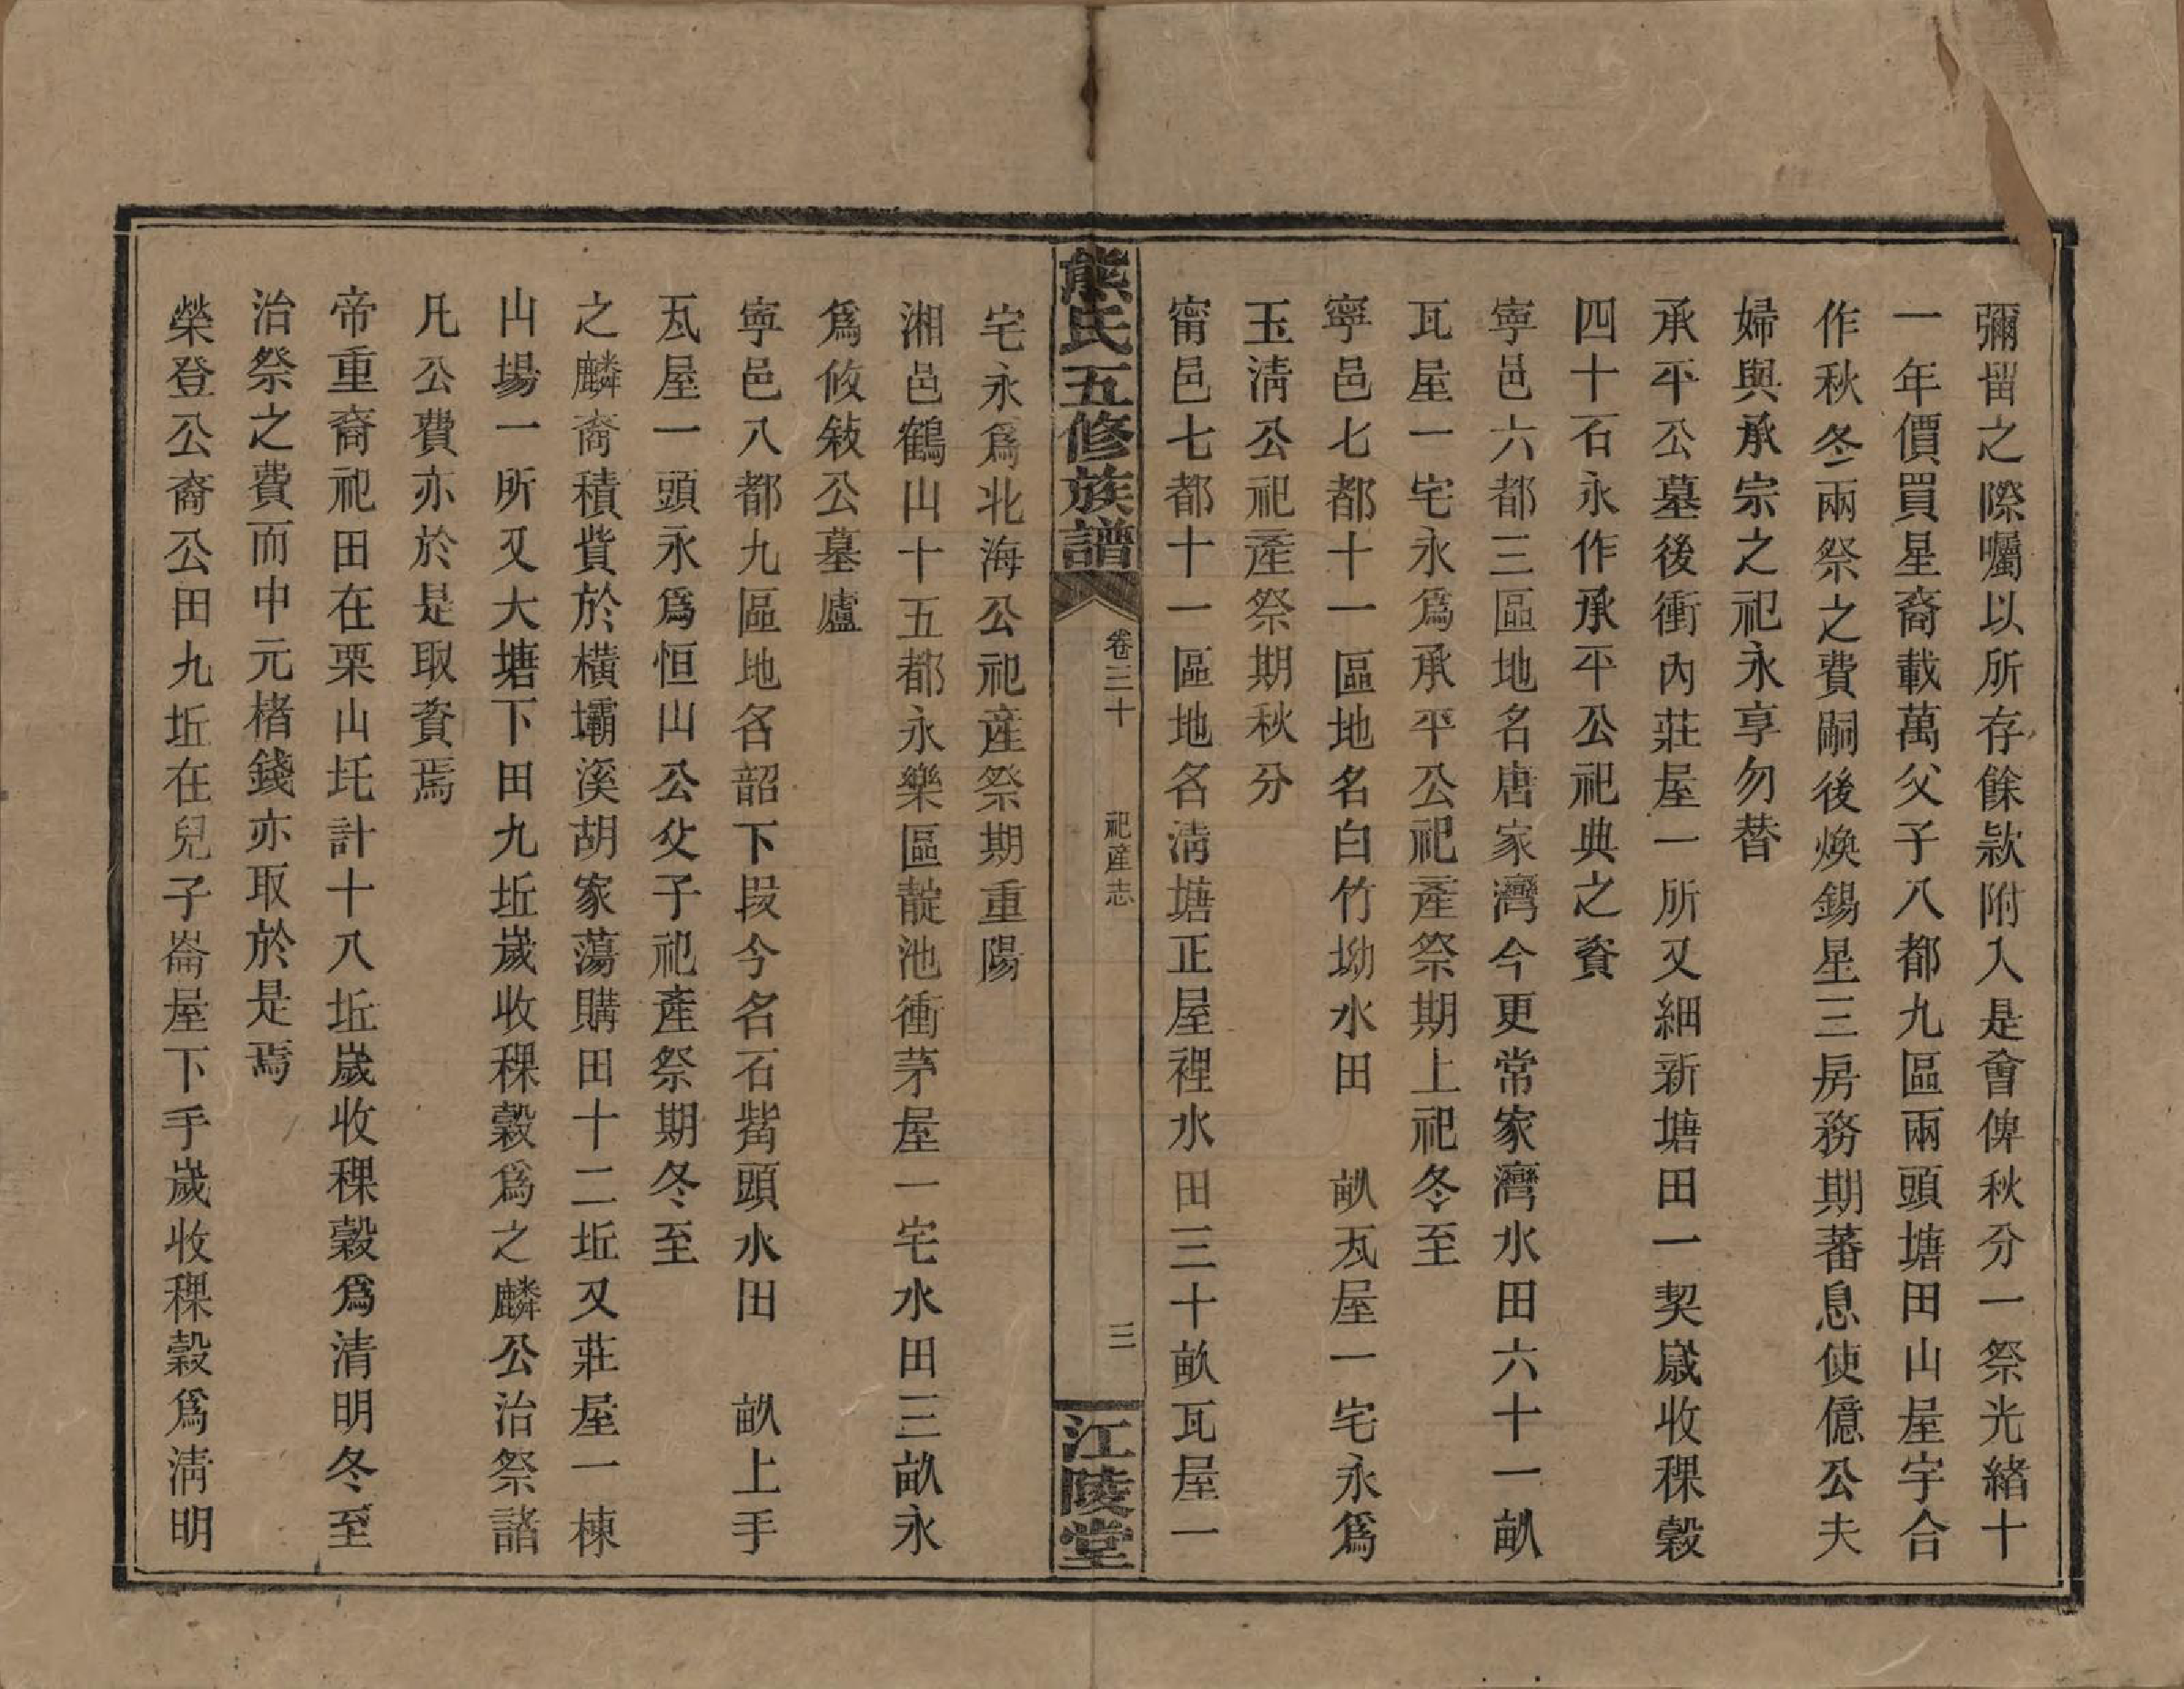 彌留之際囑以所存餘款附入是會俾秋分一祭光緒十
一年價買星裔載萬父子八都九區兩頭塘田山屋宇合
作秋冬兩祭之費嗣後煥錫星三房務期蕃息使億公夫
婦與承宗之祀永享勿替
承平公墓後衝內莊屋一所又細新塘田一契歲收稞穀
四十石永作承平公祀典之資
寧邑六都三區地名唐家灣今更常家灣水田六十一畝
瓦屋一宅永爲承平公祀產祭期上祀冬至
寧邑七都十一區地名白竹坳水田　畝瓦屋一宅永爲
玉淸公祀產祭期秋分
甯邑七都十一區地名淸塘正屋裡水田三十畝瓦屋一
熊氏五修族譜
卷三十
祀產志
三
江陵堂
宅永爲北海公祀產祭期重陽
湘邑鶴山十五都永樂區靛池衝茅屋一宅水田三畝永
爲攸敍公墓廬
寧邑八都九區地名韶下段今名石觜頭水田　畝上手
瓦屋一頭永爲恒山公父子祀產祭期冬至
之麟裔積貲於橫壩溪胡家蕩購田十二坵又莊屋一棟
山場一所又大塘下田九坵歲收稞穀爲之麟公治祭諸
凡公費亦於是取資焉
帝重裔祀田在栗山圫計十八坵歲收稞穀爲清明冬至
治祭之費而中元楮錢亦取於是焉
榮登公裔公田九坵在兒子崙屋下手歲收稞穀爲淸明